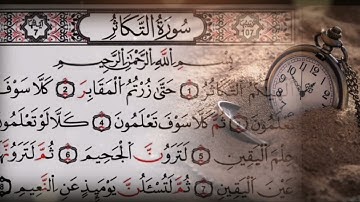 سُورَةُ التَّكَاثُرِ
بِسْمِ اللَّهِ الرَّحْمَٰنِ الرَّحِيمِ
التَّكَاثُرُ 1 حَتَّىٰ زُرْتُمُ الْمَقَابِرَ 2 كَلَّا سَوْفَ
تَعْلَمُونَ ثُمَّ كَلَّا سَوْفَ تَعْلَمُونَ كَلَّا لَوْ تَعْلَمُونَ
عِلْمَ الْيَقِينِ 5 لَتَرَوُنَّ الْجَحِيمَ 6 ثُمَّ لَتَرَوُنَّهَا
عَيْنَ الْيَقِينِ 7 ثُمَّ لَتُسْـَٔلُنَّ يَوْمَئِذٍ عَنِ النَّعِيمِ 8